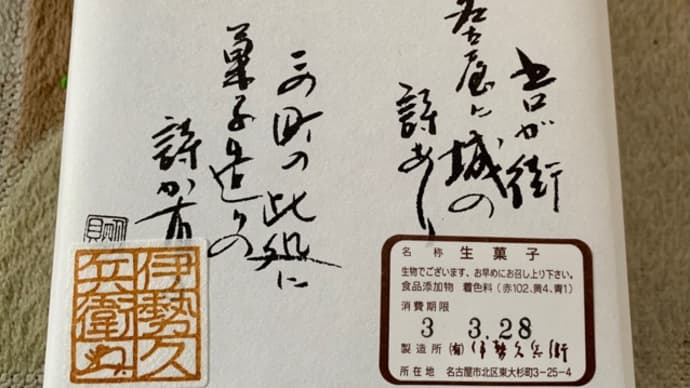 吾が街
名古屋に城の
詩あり
この町の此処に
菓子造りの
詩が有
伊勢久
兵衛
名称 生菓子
生物でございます、お早めにお召し上り下さい。
食品添加物 着色料(赤102、黄4、青1)
消費期限
3 3.28
製造所 (有)伊勢久兵衛
所在地 名古屋市北区東大杉町3-25-4